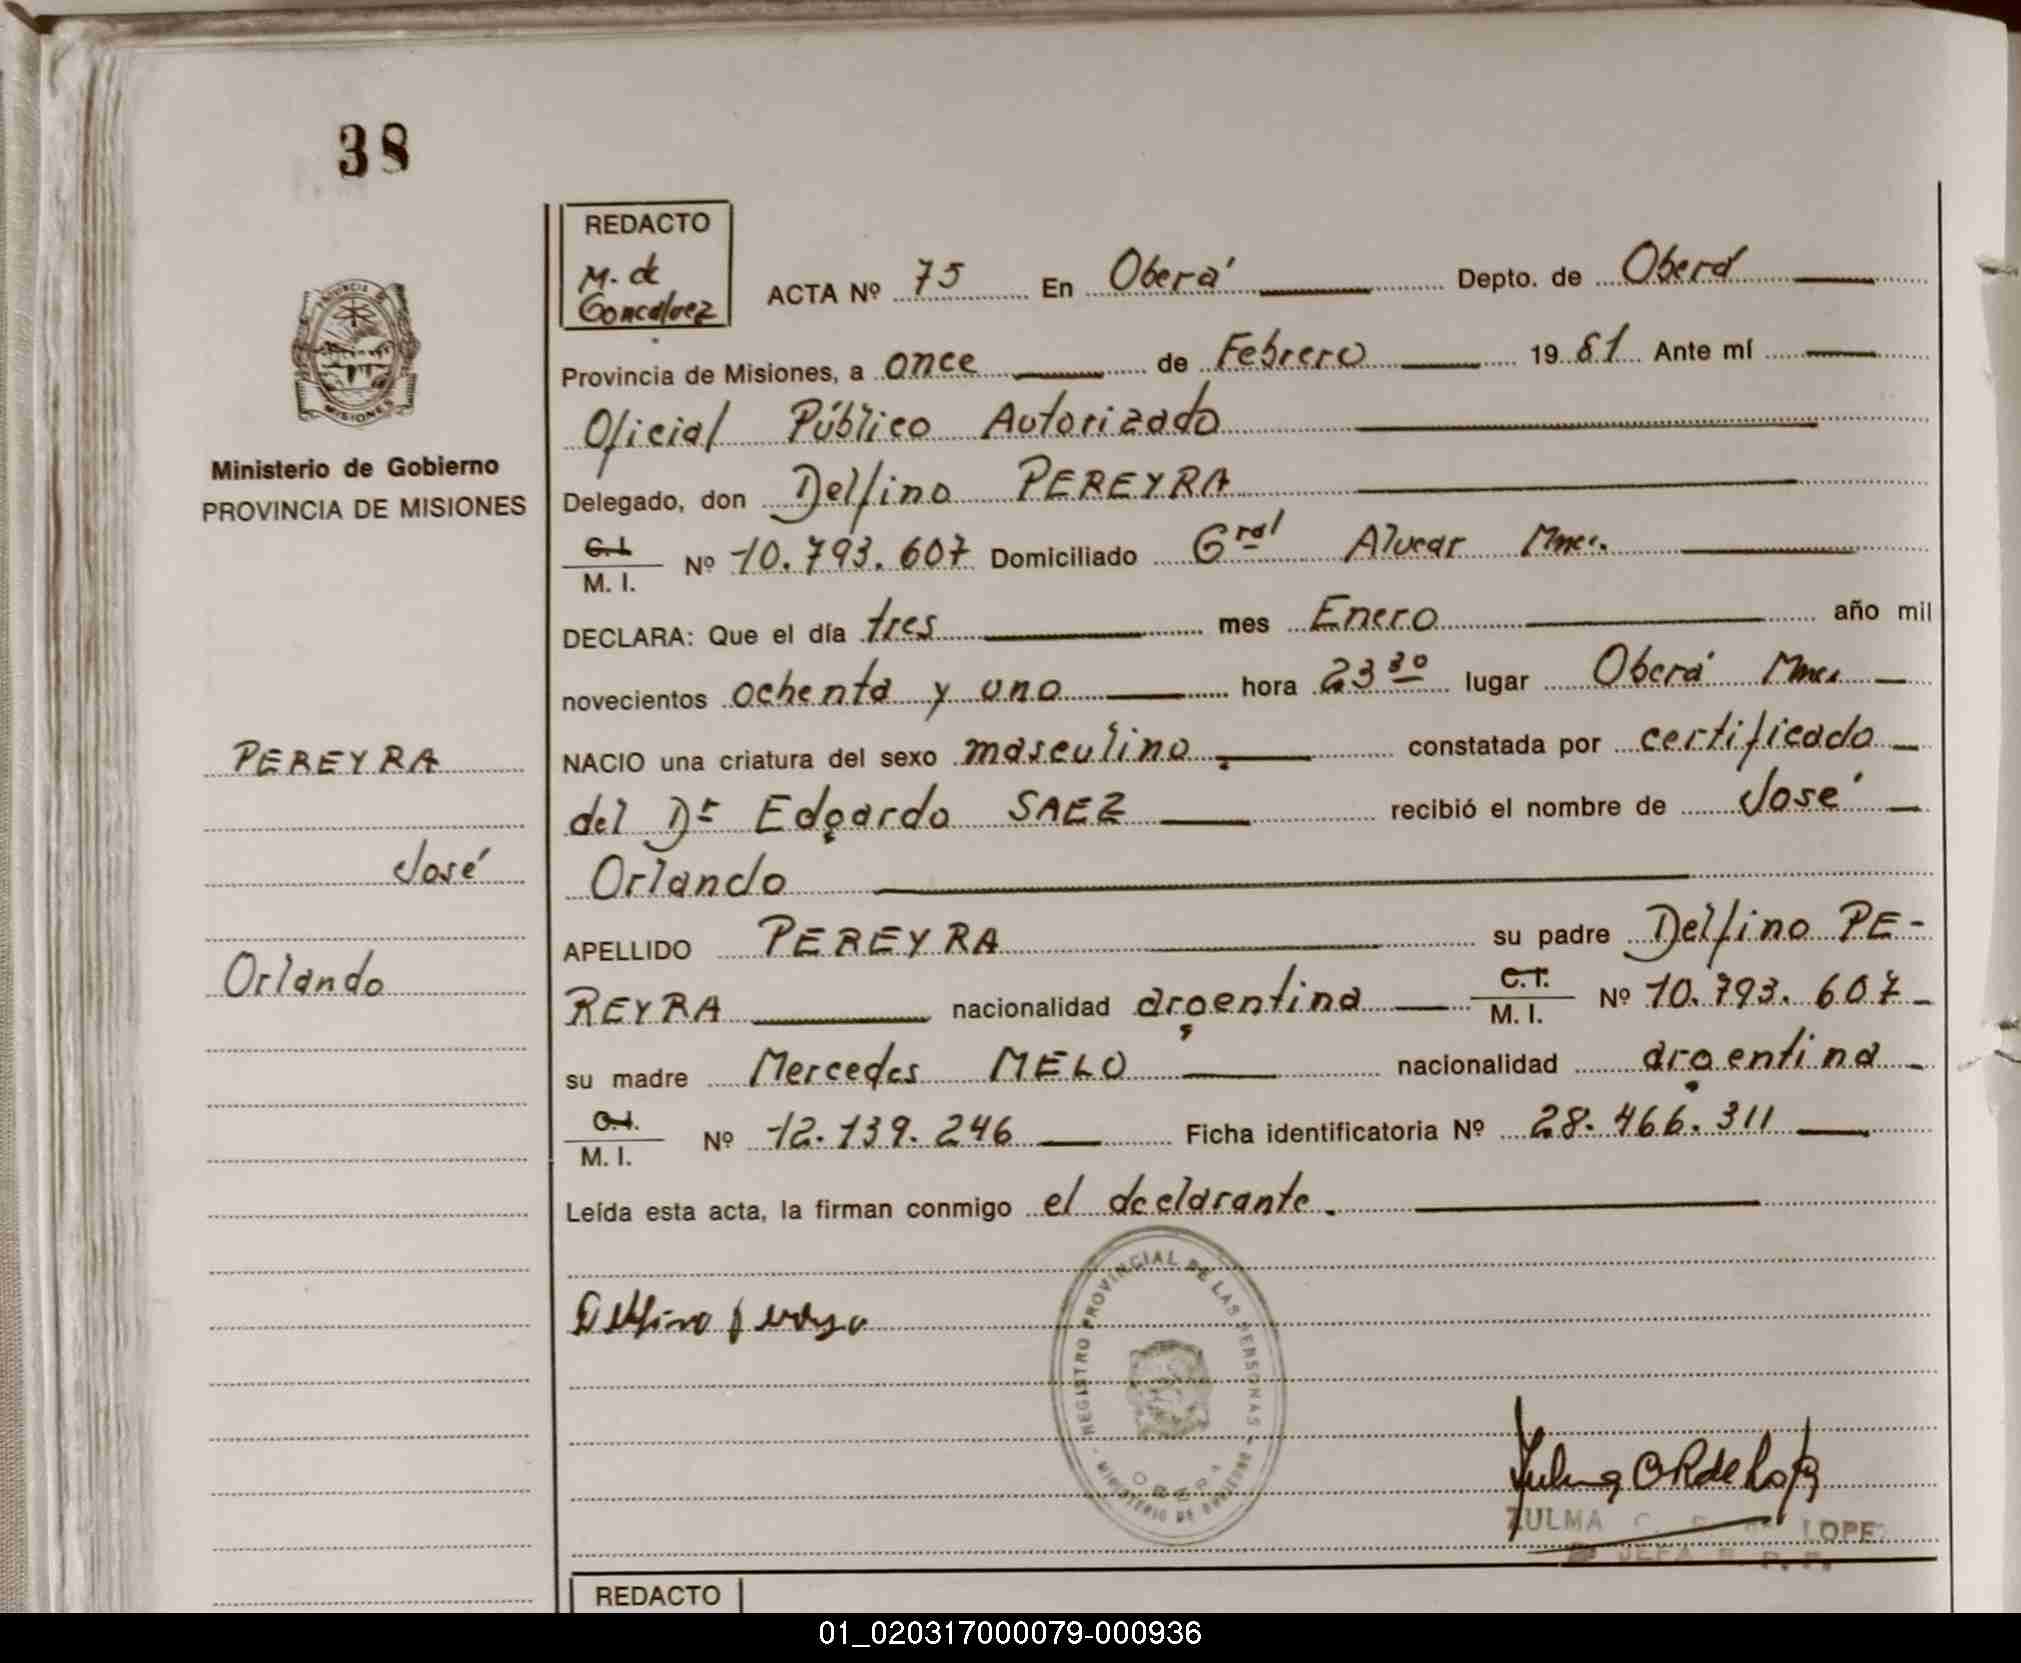 38
REDACTO
M. de
Goncalvez
ACTA Nº 75 En Oberá Depto. de Oberá
Provincia de Misiones, a once de Febrero 1981 Ante mí
Oficial Público Autorizado
Delegado, don Delfino PEREYRA
C.I.
M. I. Nº 10.793.607 Domiciliado Gral Alvear Mnes.
DECLARA: Que el día tres mes Enero año mil
novecientos ochenta y uno hora 23 30 lugar Oberá Mnes
NACIO una criatura del sexo masculino constatada por certificado
del Dr Edgardo SAEZ recibió el nombre de José
Orlando
APELLIDO PEREYRA su padre Delfino PE-
REYRA nacionalidad argentina C.I. M. I. Nº 10.793.607
su madre Mercedes MELO nacionalidad argentina
C.I.
M. I. Nº 12.139.246 Ficha identificatoria Nº 28.466.311
Leída esta acta, la firman conmigo el declarante.
Delfino Pereyra
PROVINCIA DE
MISIONES
Ministerio de Gobierno
PROVINCIA DE MISIONES
PEREYRA
José
Orlando
REGISTRO PROVINCIAL DE LAS PERSONAS
MINISTERIO DE GOBIERNO
OBERA
ZULMA C. LOPEZ
JEFA R. P. P.
REDACTO
01_020317000079-000936